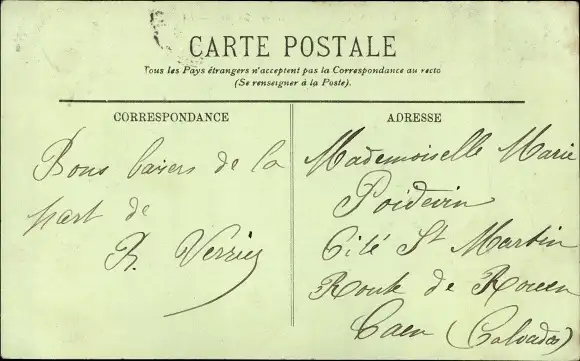 CARTE POSTALE
Tous les Pays étrangers n'acceptent pas la Correspondance au recto
(Se renseigner à la Poste).
CORRESPONDANCE
Bons baisers de la
part de
R. Verrier
ADRESSE
Mademoiselle Marie
Poidevin
Cité St Martin
Route de Rouen
Caen (Calvados)